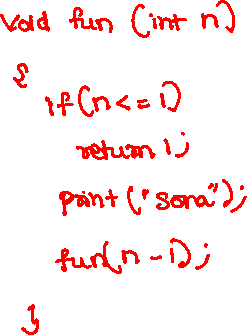 void fun (int n)
{
if(n<=1)
return 1;
print("sona");
fun(n-1);
}